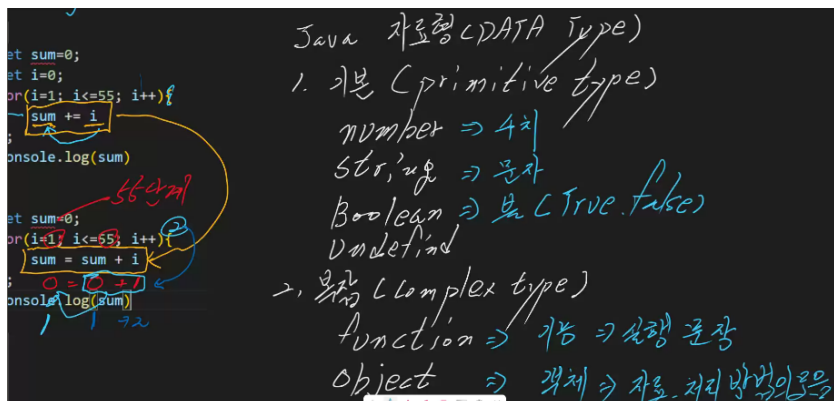 et sum=0;
et i=0;
or(i=1; i<=55; i++){
sum += i
;
onsole.log(sum)
55단계
et sum=0;
2
or(i=1; i<=55; i++){
sum = sum + i
0 = 0 + 1
;
onsole.log(sum)
1 1 +2
Java 자료형 (DATA Type)
1. 기본 (primitive type)
number => 수치
string => 문자
Boolean => 불 (True.false)
Undefind
2. 복합 (Complex type)
function => 기능 => 실행 문장
object => 객체 => 자료.처리 방법의